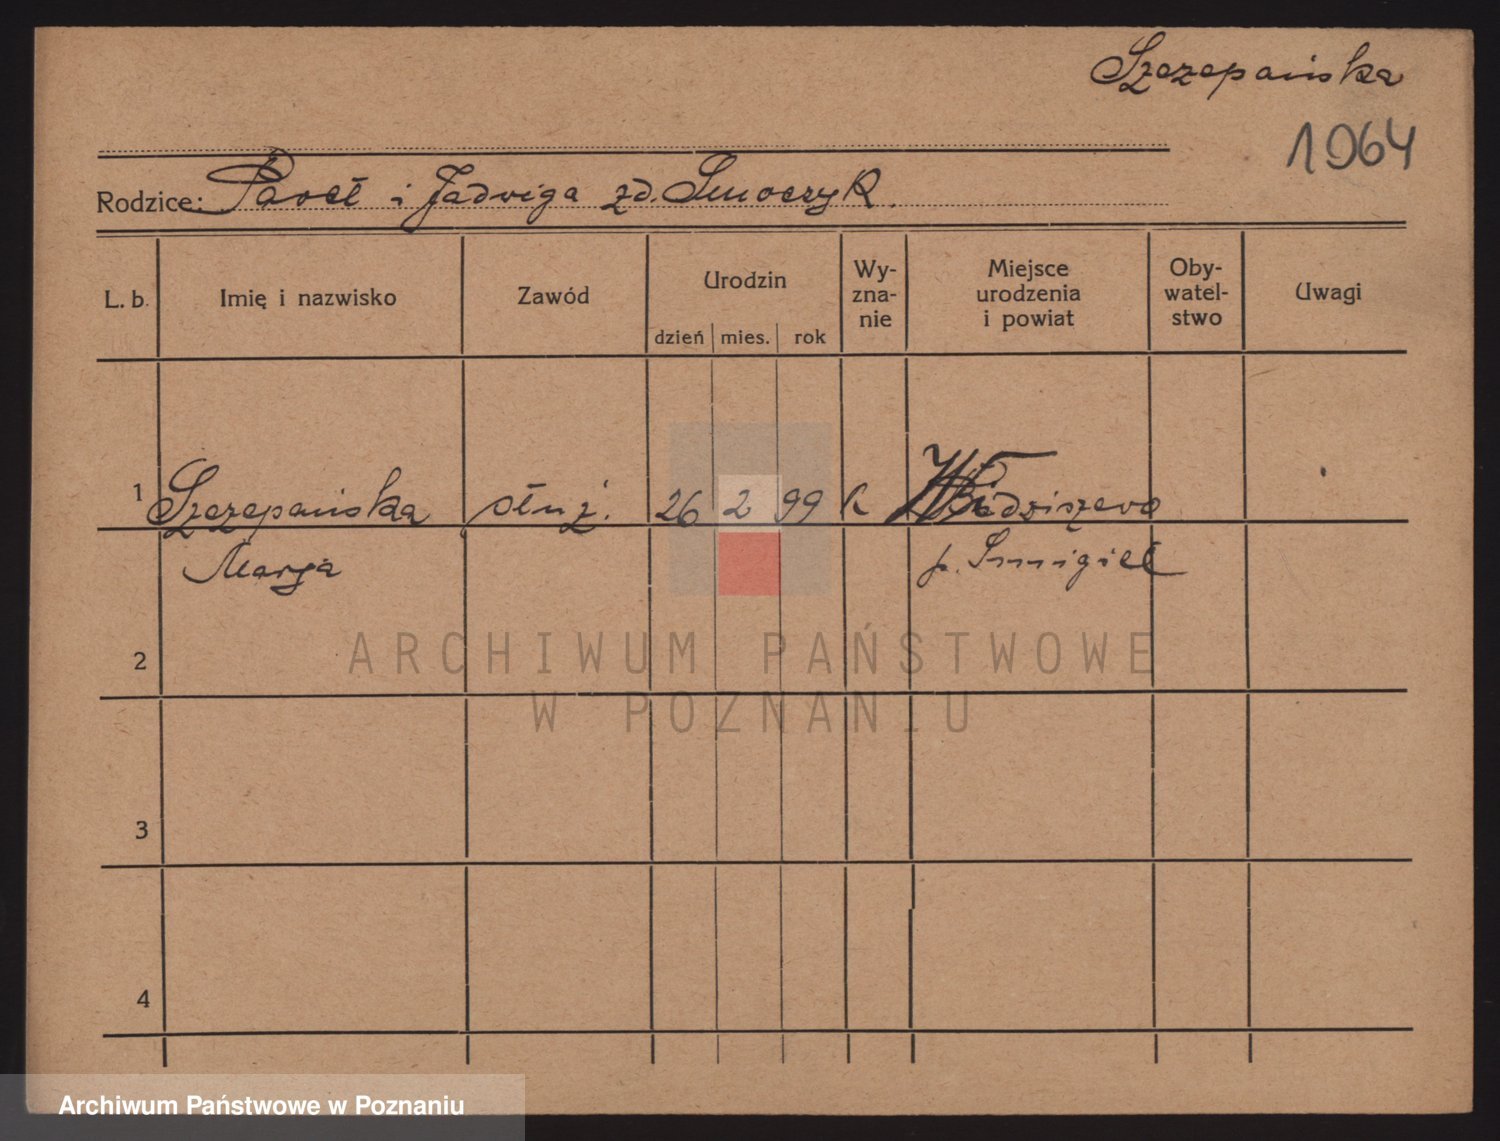 Szczepańska
1064
Rodzice: Paweł i Jadwiga zd. Smoczyk.
L. b.
Imię i nazwisko
Zawód
Urodzin
dzień mies. rok
Wy-
zna-
nie
Miejsce
urodzenia
i powiat
Oby-
watel-
stwo
Uwagi
1 Szczepańska służ. 26 2 99 k
Marja
p. Śmigiel
2
3
4
ARCHIWUM PAŃSTWOWE
W POZNANIU
Archiwum Państwowe w Poznaniu